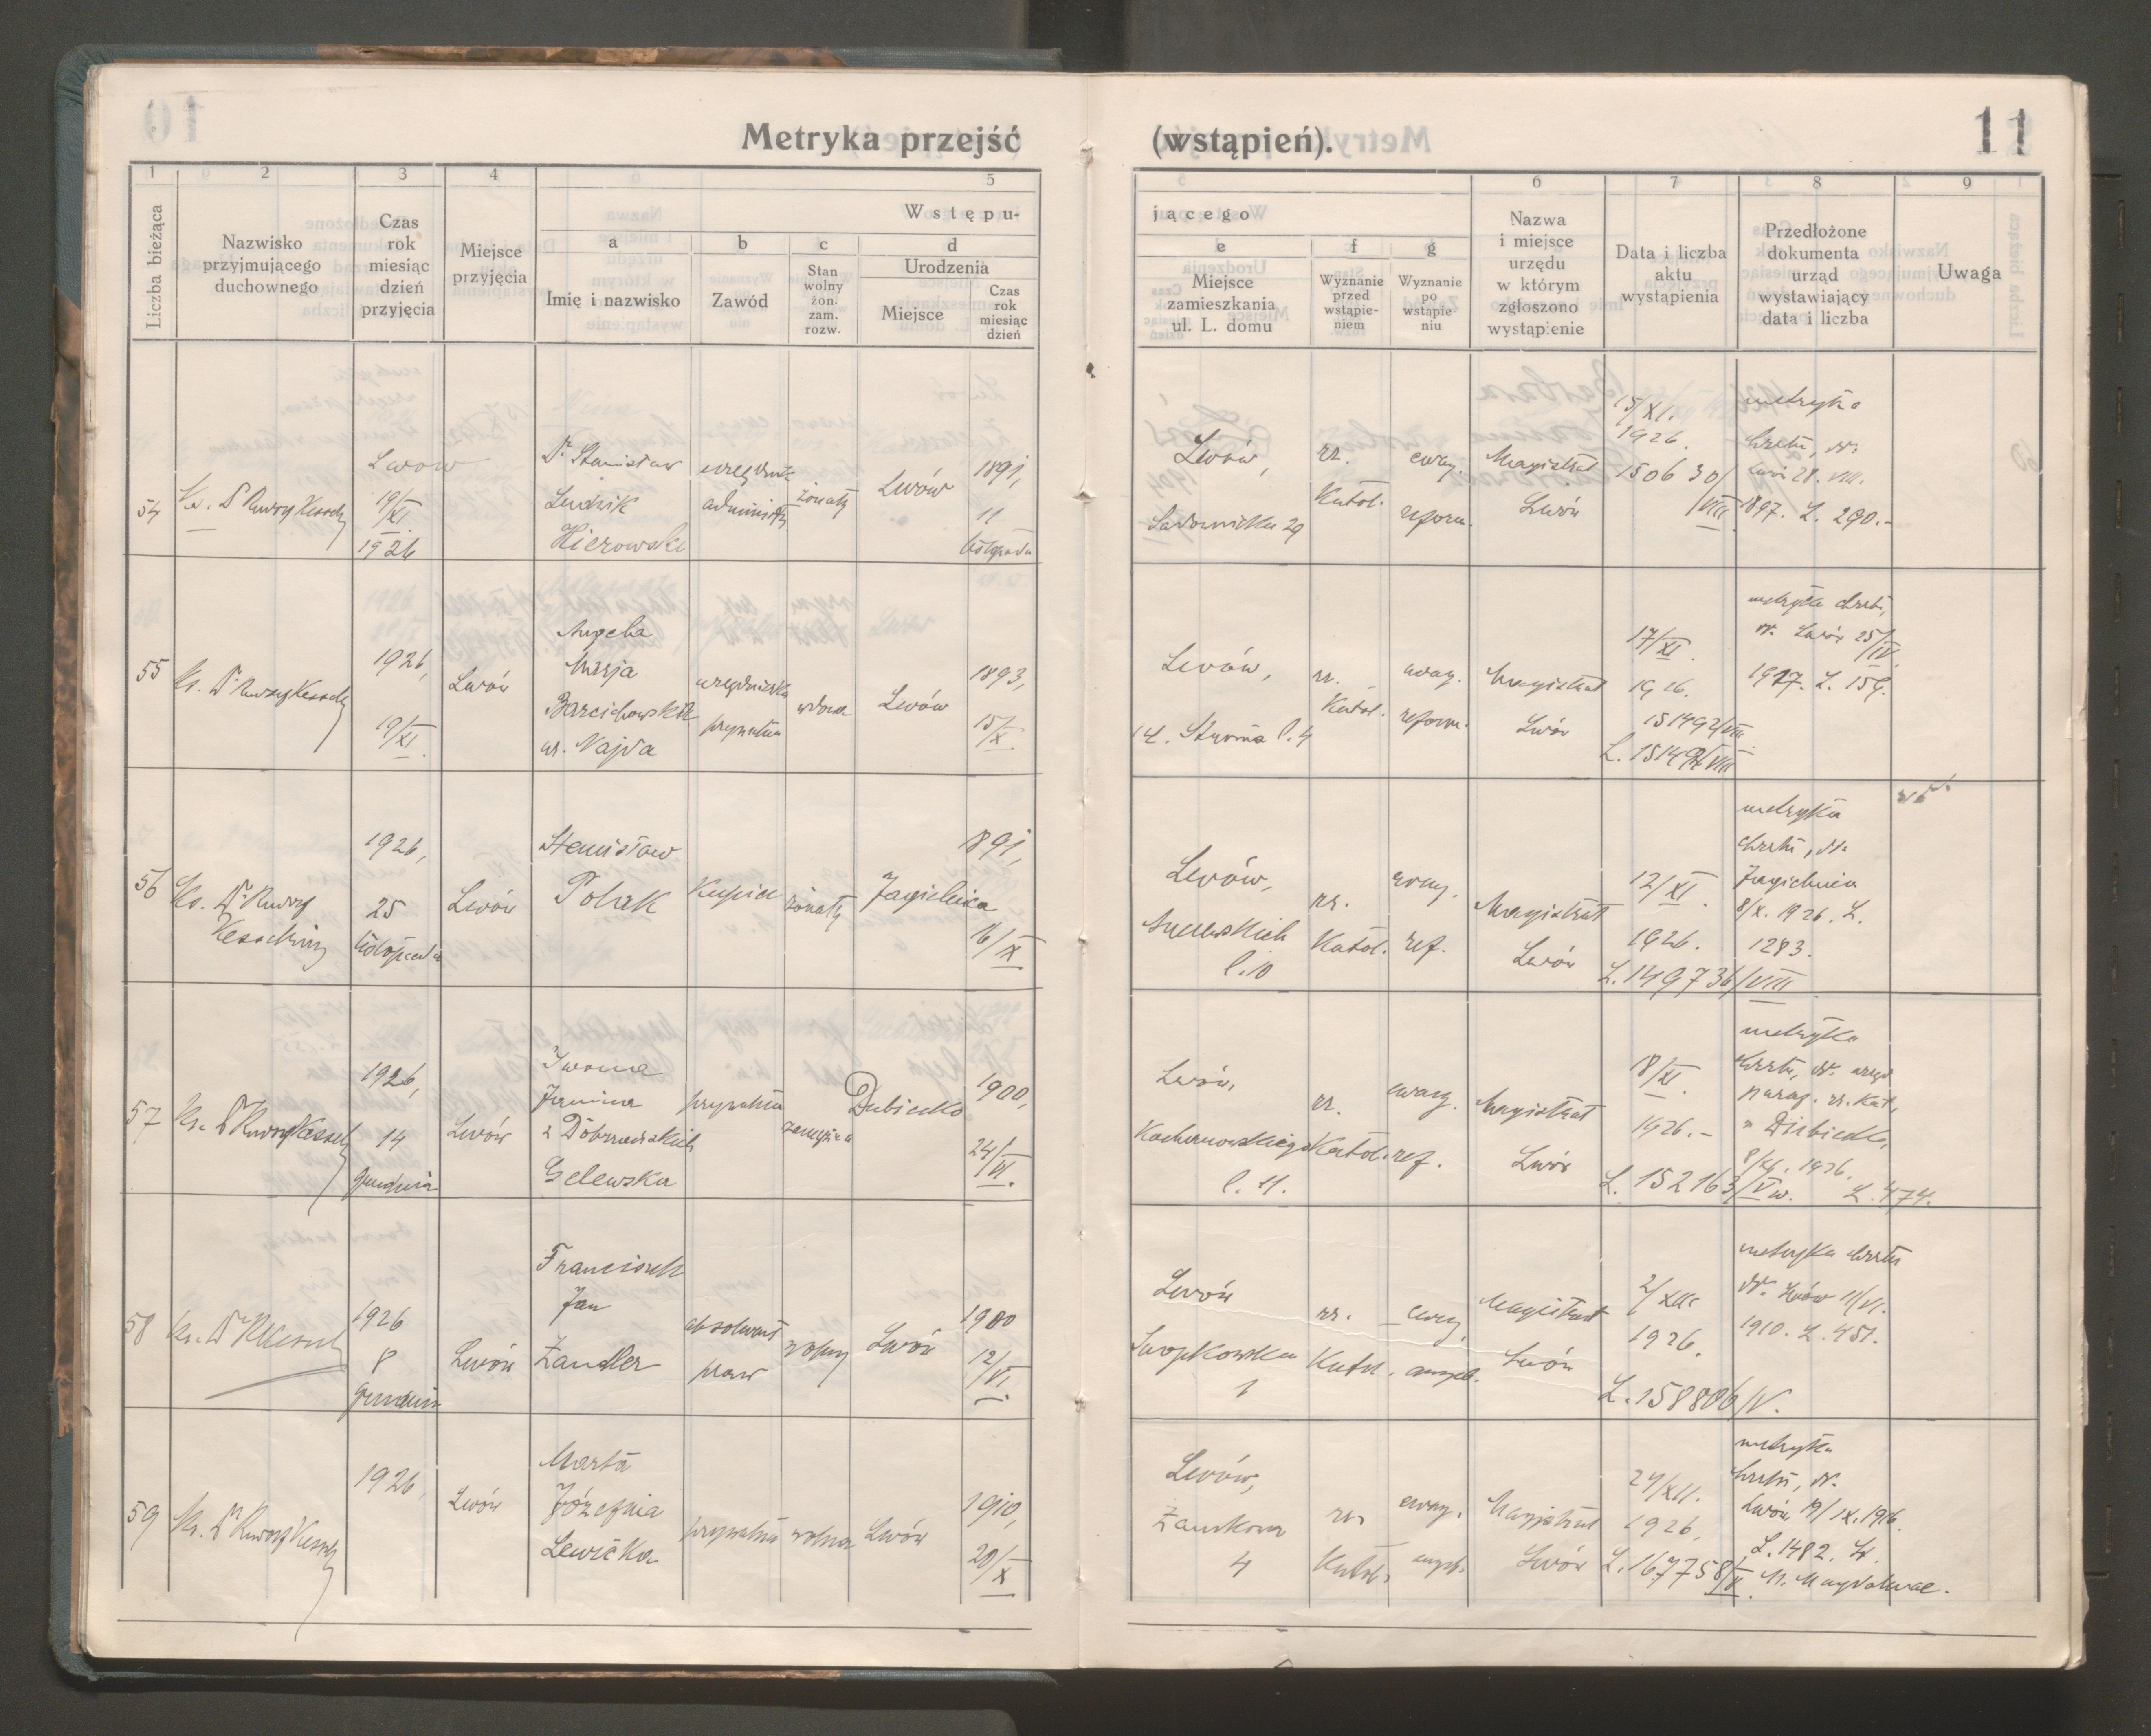 Metryka przejść (wstąpień). 11
1 2 3 4 5
Liczba bieżąca
Nazwisko
przyjmującego
duchownego
Czas
rok
miesiąc
dzień
przyjęcia
Miejsce
przyjęcia
Wstępu-
a b c d
Imię i nazwisko
Zawód
Stan
wolny
żon.
zam.
rozw.
Urodzenia
Miejsce
Czas
rok
miesiąc
dzień
jącego
6 7 8 9
e f g
Miejsce
zamieszkania
ul. L. domu
Wyznanie
przed
wstąpie-
niem
Wyznanie
po
wstąpie
niu
Nazwa
i miejsce
urzędu
w którym
zgłoszono
wystąpienie
Data i liczba
aktu
wystąpienia
Przedłożone
dokumenta
urząd
wystawiający
data i liczba
Uwaga
54
Lwow
19/XI
1926
Dr Stanisław
Ludwik
Hierowski
żonaty
Lwów
1891,
11
listopada
Lwów,
Sadownicka 29
rz.
Katol.
ewag.
reform.
Magistrat
Lwów
15/XI.
1926.
150630/
VIII
metryka
chrztu, dt.
Lwów 28. VIII.
1897. L. 290.-
55
1926,
19/XI.
Lwów
Angela
Marja
Barcichowska
ur. Najda
urzędniczka
prywatna
wdowa
Lwów
1893,
15/X.
Lwów,
ul. Stroma l. 4
rz.
Katol.
ewag.
reform.
Magistrat
Lwów
17/XI.
1926.
L. 151492/VIII
metryka chrztu,
dt. Lwów 25/IV.
1917. L. 159.
56
Ks. Dr Rudolf
Kesselring
1926,
25
listopada
Lwów
Stanisław
Polak
Kupiec
żonaty
Jagielnica
1891,
16/IX
Lwów,
l. 10
rz.
Katol.
ewag.
ref.
Magistrat
Lwów
12/XI.
1926.
L. 149736/VIII
metryka
chrztu, dt.
Jagielnica
8/X. 1926. L.
1283.
57
1926,
14
grudnia
Lwów
Iwona
Janina
z Dobrzańskich
Gelewska
prywatna
zamężna
Dubiecko
1900,
24/VI.
Lwów,
Kochanowskiego
l. 11.
rz.
Katol.
ewang.
ref.
Magistrat
Lwów
18/XI.
1926.-
L. 152163/Vw.
metryka
chrztu, dt. urząd
paraf. rz. Kat.
w Dubiecku,
8/XI. 1926.
L. 474.
58
1926
8
grudnia
Lwów
Franciszek
Jan
Zandler
absolwent
praw
wolny
Lwów
12/VI.
Lwów
Snopkowska
1
rz.
Katol.
ewag.
augsb.
Magistrat
Lwów
2/XII
1926.
L. 158806/V.
metryka chrztu
dt. Lwów 11/VI.
1910. L. 451.
59
1926,
Lwów
Marta
Józefina
Lewicka
prywatna
wolna
Lwów
1910,
20/X
Lwów,
Zamkowa
4
rz.
Katol.
ewag.
augsb.
Magistrat
Lwów
24/XII.
1926,
L. 167758/V.
metryka
chrztu, dt.
Lwów 19/IX. 1916.
L. 1482.
M. Magdalenae.